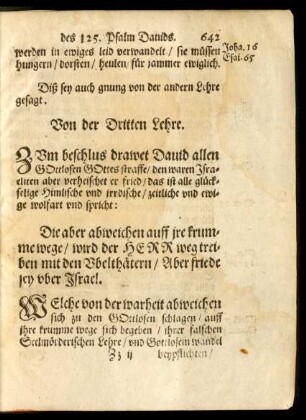 des 125. Psalm Dauids. 642
werden in ewiges leid verwandelt / sie müssen
Joha. 16
hungern / dorsten / heulen / für jammer ewiglich.
Esai. 65
Diß sey auch gnung von der andern Lehre
gesagt.
Von der Dritten Lehre.
ZVm beschlus drawet Dauid allen
GOttlosen GOttes straffe / den waren Jsra-
eliten aber verheischet er fried / das ist alle glück-
selige Himlische vnd irrdische / zeitliche vnd ewi-
ge wolfart vnd spricht:
Die aber abweichen auff jre krum-
me wege / wird der HERR weg trei-
ben mit den Vbelthätern / Aber friede
sey vber Jsrael.
WElche von der warheit abweichen
sich zu den GOttlosen schlagen / auff
jhre krumme wege sich begeben / jhrer falschen
Seelmörderischen Lehre / vnd Gottlosem wandel
Zz ij beypflichten /